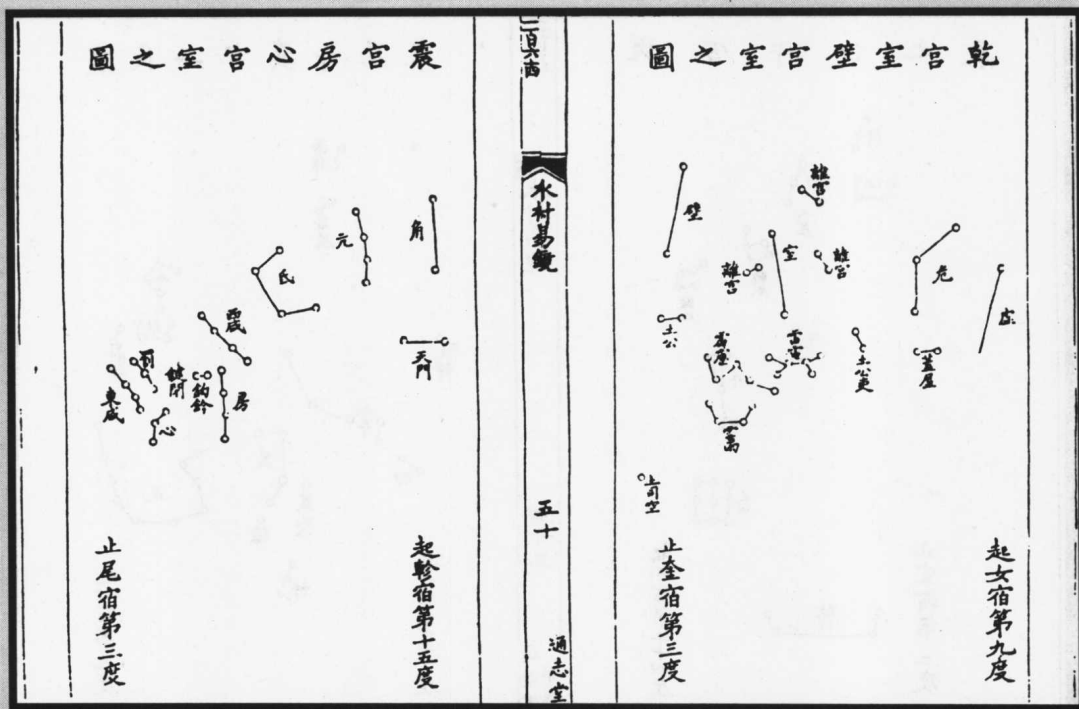 乾宮室壁宮室之圖
虛
危
蓋屋
離宮
離宮
離宮
室
壁
土公吏
雷電
霹靂
土公
上司空
起女宿第九度
止奎宿第三度
水村易鏡
五十
通志堂
震宮房心宮室之圖
角
天門
亢
氐
房
鈎鈐
鍵閉
罰
東咸
心
起軫宿第十五度
止尾宿第三度